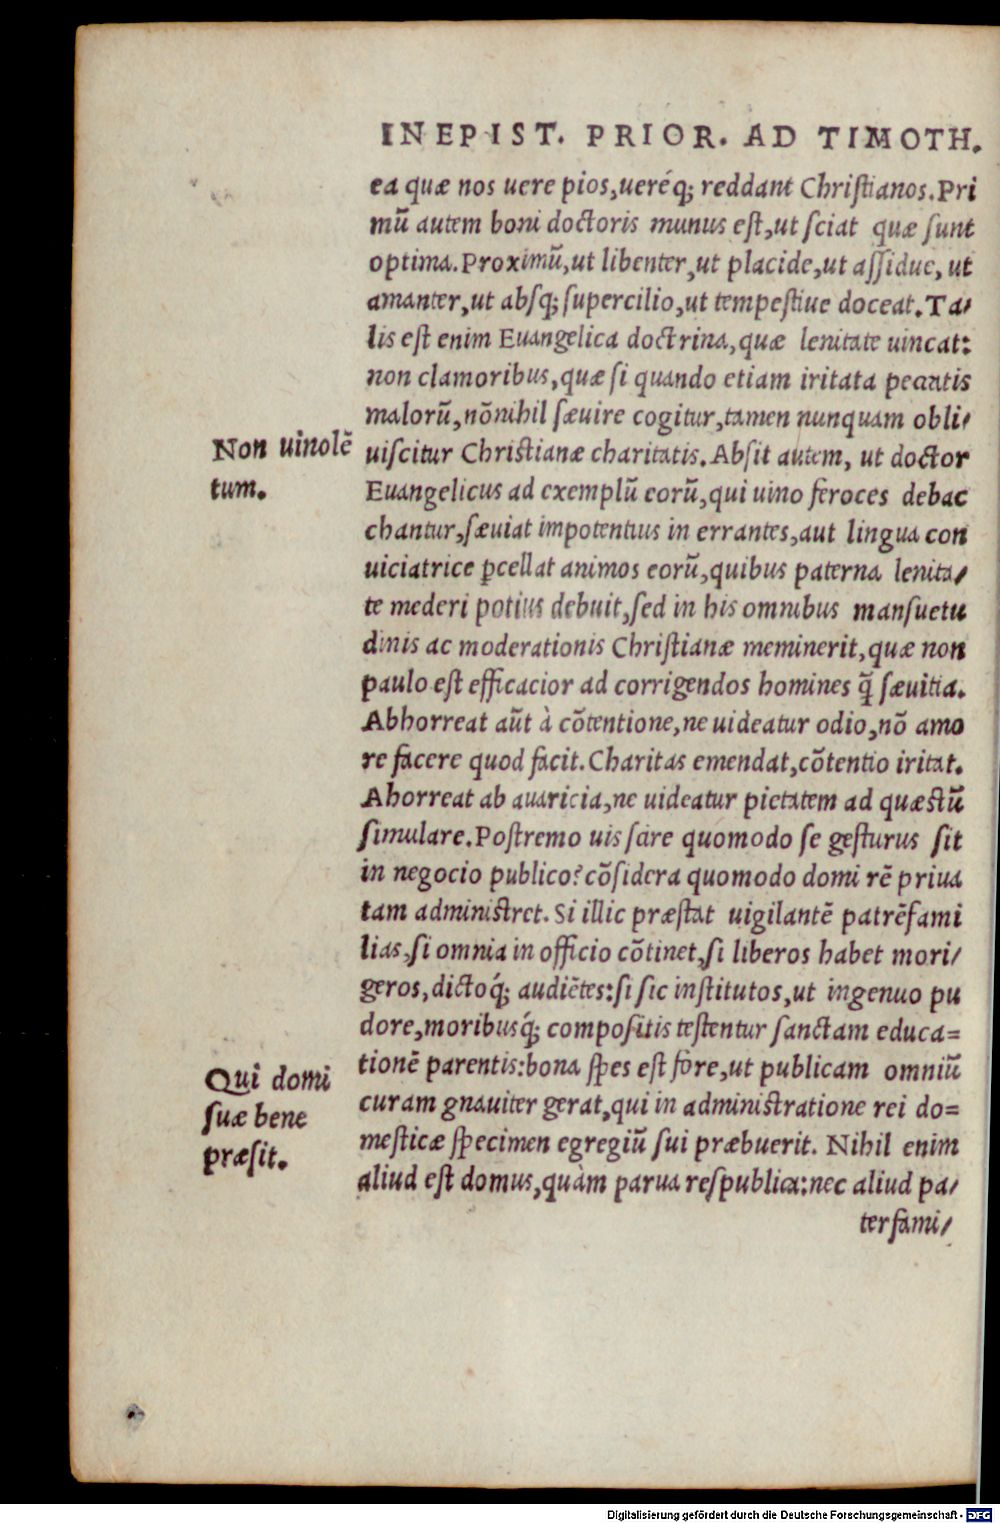 IN EPIST. PRIOR. AD TIMOTH.
ea quæ nos uere pios, ueréq; reddant Christianos. Pri
mũ autem boni doctoris munus est, ut sciat quæ sunt
optima. Proximũ, ut libenter, ut placide, ut assidue, ut
amanter, ut absq; supercilio, ut tempestiue doceat. Ta/
lis est enim Euangelica doctrina, quæ lenitate uincat:
non clamoribus, quæ si quando etiam iritata peccatis
malorũ, nõnihil sæuire cogitur, tamen nunquam obli/
Non uinolẽ
tum.
uiscitur Christianæ charitatis. Absit autem, ut doctor
Euangelicus ad exemplũ eorũ, qui uino feroces debac
chantur, sæuiat impotentius in errantes, aut lingua con
uiciatrice ꝑcellat animos eorũ, quibus paterna lenita/
te mederi potius debuit, sed in his omnibus mansuetu
dinis ac moderationis Christianæ meminerit, quæ non
paulo est efficacior ad corrigendos homines q̃ sæuitia.
Abhorreat aũt à cõtentione, ne uideatur odio, nõ amo
re facere quod facit. Charitas emendat, cõtentio iritat.
Ahorreat ab auaricia, ne uideatur pietatem ad quæstũ
simulare. Postremo uis scire quomodo se gesturus sit
in negocio publico? cõsidera quomodo domi rẽ priua
tam administret. Si illic præstat uigilantẽ patrẽfami
lias, si omnia in officio cõtinet, si liberos habet mori/
geros, dictoq́; audiẽtes: si sic institutos, ut ingenuo pu
dore, moribusq́; compositis testentur sanctam educa=
tionẽ parentis: bona spes est fore, ut publicam omniũ
Qui domi
suæ bene
præsit.
curam gnauiter gerat, qui in administratione rei do=
mesticæ specimen egregiũ sui præbuerit. Nihil enim
aliud est domus, quàm parua respublica: nec aliud pa/
terfami/
Digitalisierung gefördert durch die Deutsche Forschungsgemeinschaft - DFG